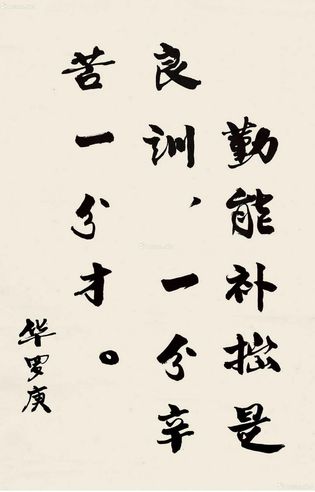 勤能补拙是
良训,一分辛
苦一分才。
华罗庚